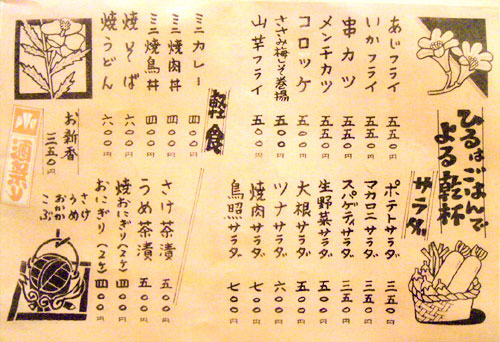 ひるはごはんで
よる乾杯
あじフライ 五五〇円
いかフライ 五五〇円
串カツ 五五〇円
メンチカツ 五五〇円
コロッケ 五〇〇円
ささみ梅しそ巻揚 五〇〇円
山芋フライ 五〇〇円
サラダ
ポテトサラダ 三五〇円
マカロニサラダ 三五〇円
スパゲティサラダ 三五〇円
生野菜サラダ 五〇〇円
大根サラダ 五〇〇円
ツナサラダ 六〇〇円
焼肉サラダ 七〇〇円
鳥照サラダ 七〇〇円
軽食
ミニカレー 四〇〇円
ミニ焼肉丼 四〇〇円
ミニ焼鳥丼 四〇〇円
焼そば 六〇〇円
焼うどん 六〇〇円
お新香 三五〇円
さけ茶漬 五〇〇円
うめ茶漬 五〇〇円
焼おにぎり(2ケ) 四〇〇円
おにぎり(2ケ) 四〇〇円
さけ
うめ
おかか
こぶ